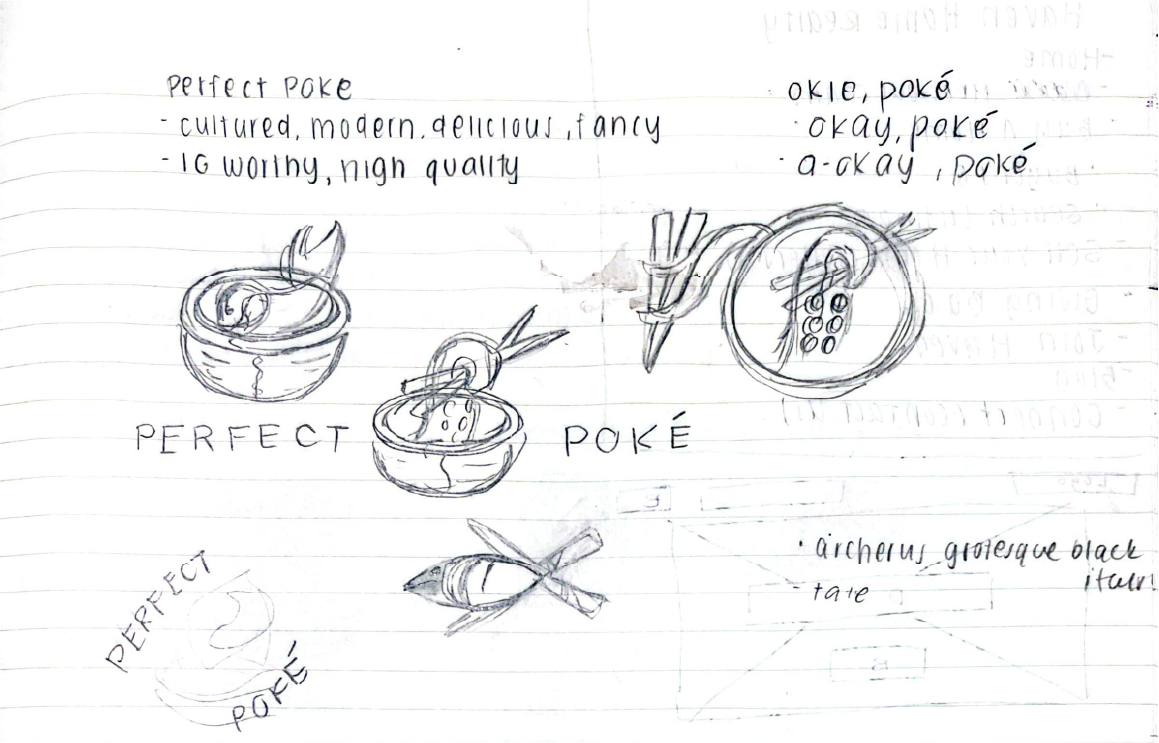 perfect poke
- cultured, modern, delicious, fancy
- IG worthy, high quality
okie, poké
· okay, poké
· a-okay, poké
PERFECT POKÉ
· archerus grotesque black
- tare
PERFECT
POKÉ